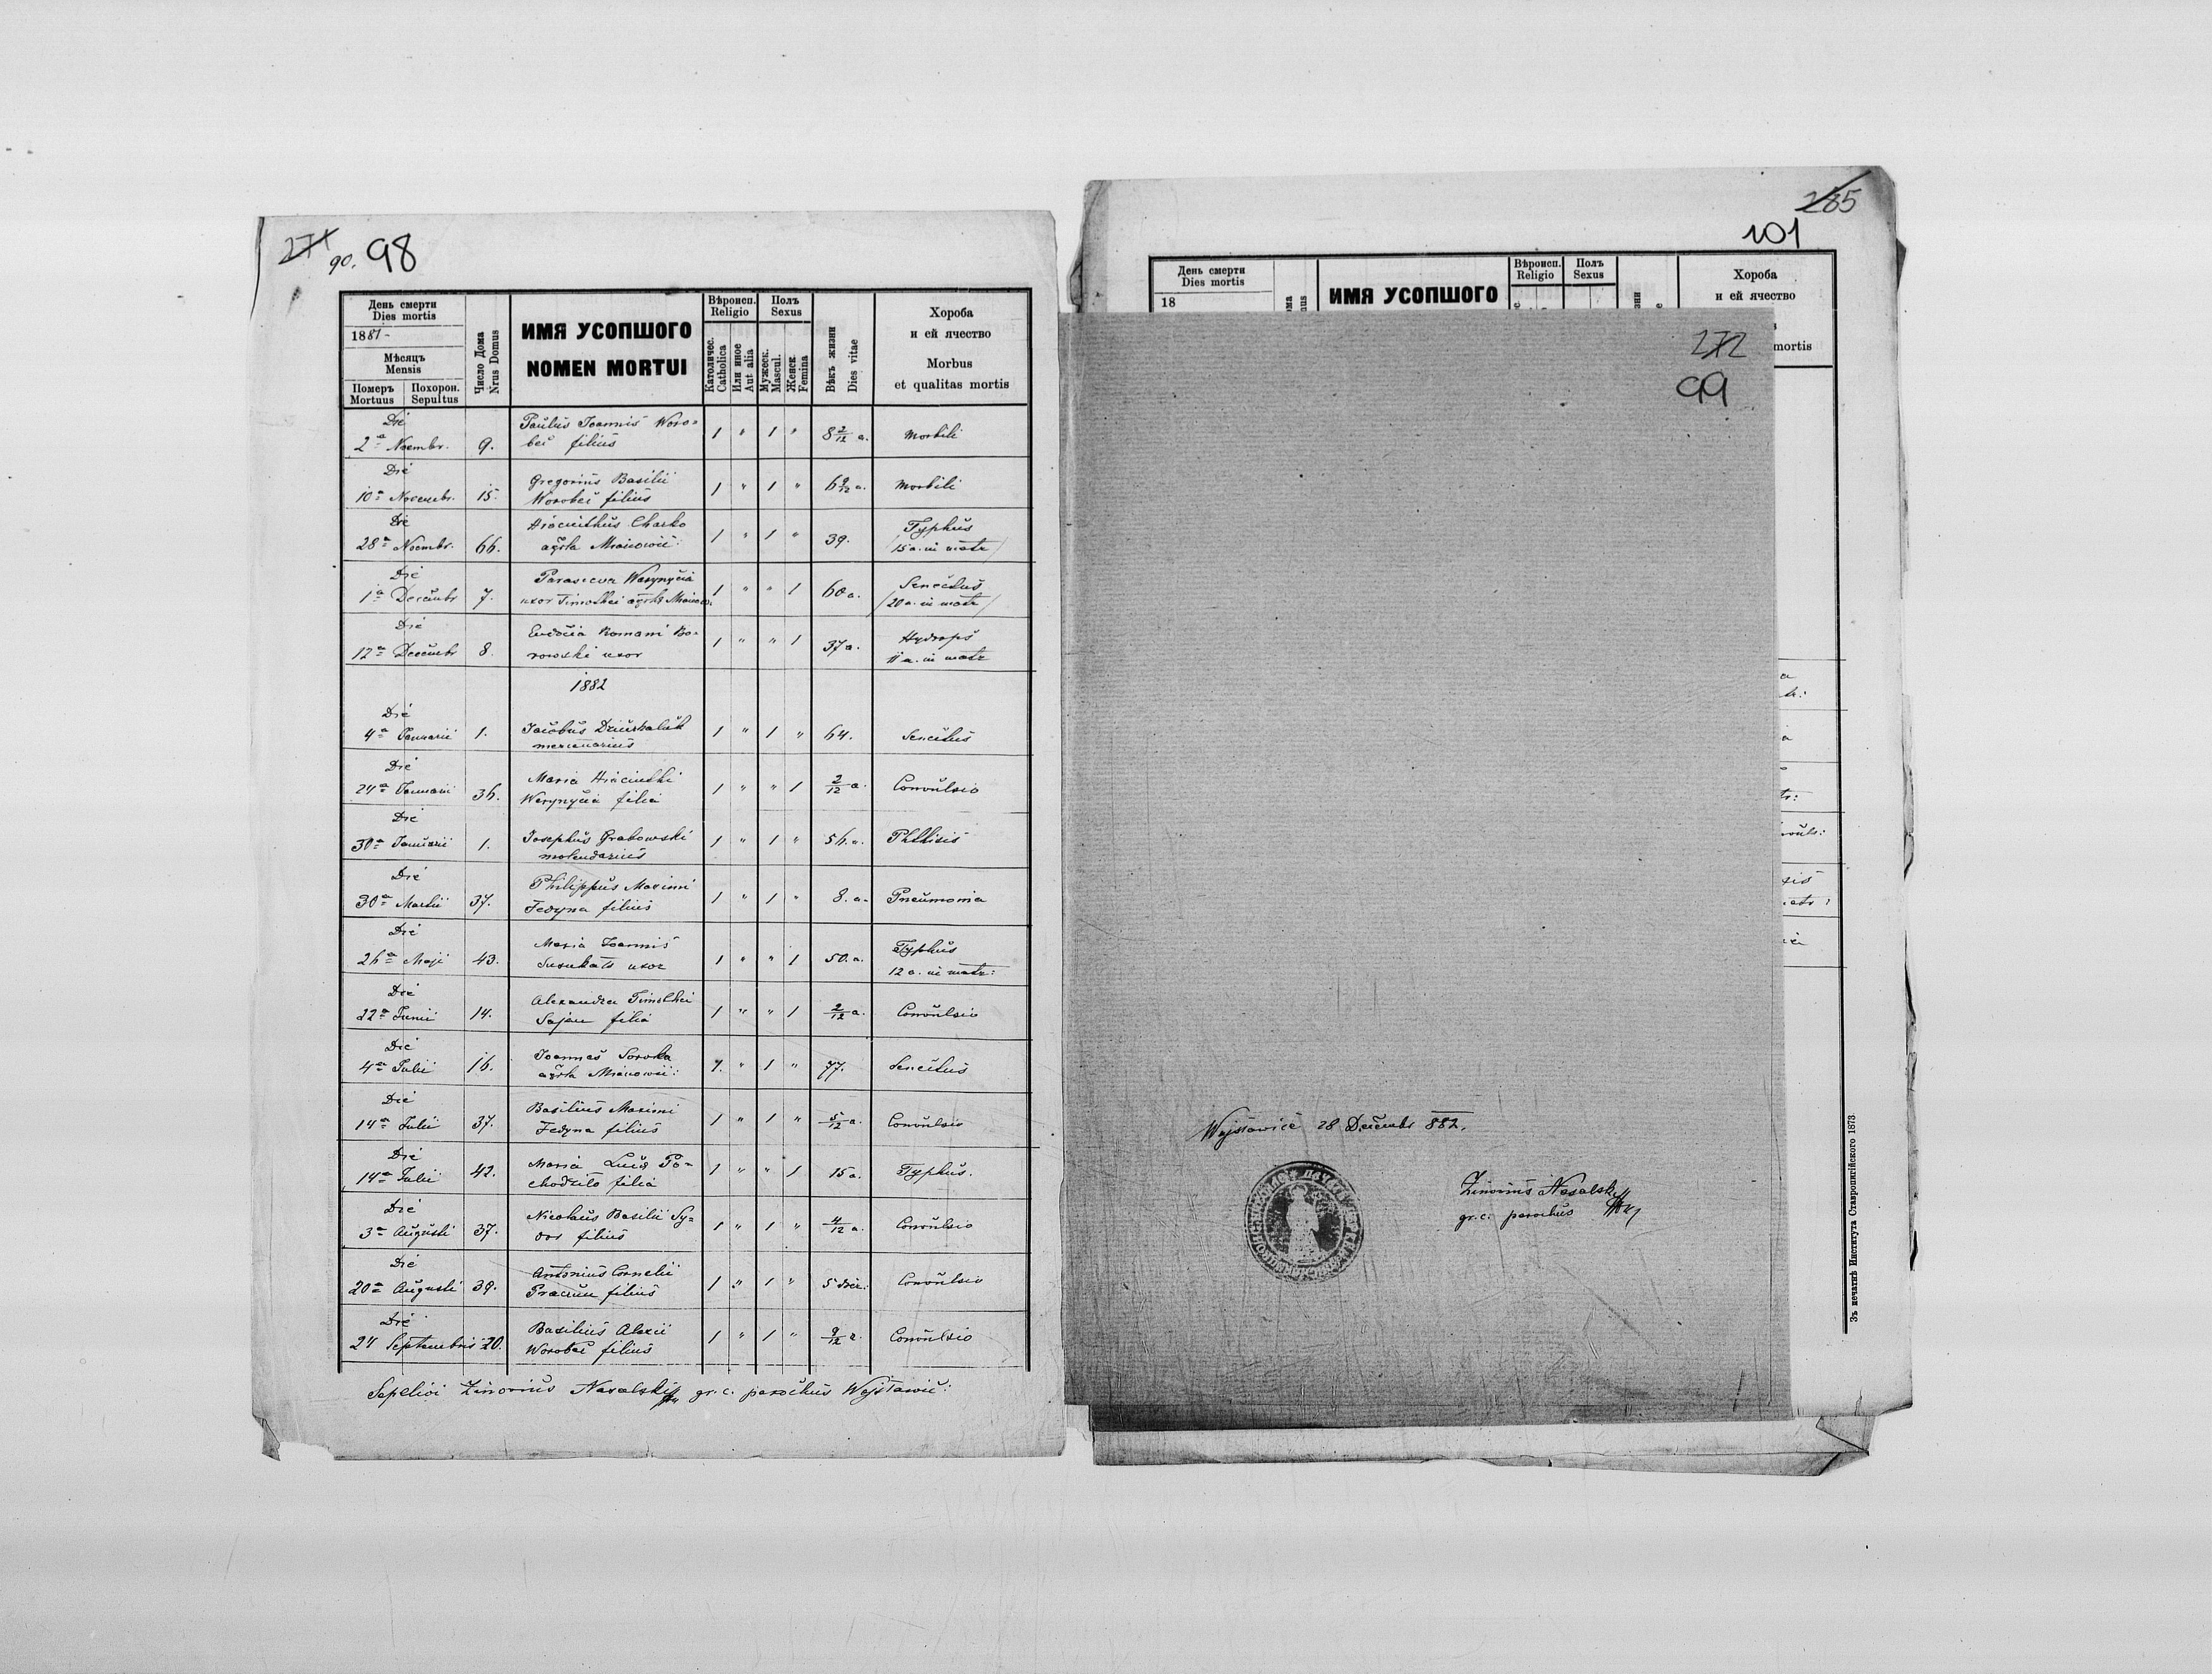 271
90. 98
День смерти
Dies mortis
1881-
Мѣсяцъ
Mensis
Померъ Похорон.
Mortuus Sepultus
Число Дома
Nrus Domus
ИМЯ УСОПШОГО
NOMEN MORTUI
Вѣроисп.
Religio
Католичес.
Catholica
Или иное
Aut alia
Полъ
Sexus
Мужеск.
Mascul.
Женск.
Femina
Вѣкъ жизни
Dies vitae
Хороба
и ей ячество
Morbus
et qualitas mortis
Die
2ª Noembr. 9. Paulus Joannis Woro-
bei filius 1 " 1 " 8 2/12 a. Morbili
Die
10ª Novembr. 15. Gregorius Basilii
Worobei filius 1 " 1 " 6 9/12 a. Morbili
Die
28ª Noembr. 66. Hiacinthus Charko
1 " 1 " 39. Typhus
15 a. in matr
Die
1ª Decembr 7. Parasceva Werynycia
uxor Timothei 1 " " 1 60 a. Senectus
20 a. in matr
Die
12ª Decembr 8. Eudocia Romani Bo-
rowski uxor 1 " " 1 37 a. Hydrops
11 a. in matr
1882
Die
4ª Januarii 1. Jacobus
mercenarius 1 " 1 " 64. Senectus
Die
24ª Januarii 36. Maria Hiacinthi
Werynycia filia 1 " " 1 2/12 a. Convulsio
Die
30ª Januarii 1. Josephus Grabowski
molendarius 1 " 1 " 56. a. Phthisis
Die
30ª Martii 37. Philippus Maximi
Fedyna filius 1 " 1 " 8. a. Pneumonia
Die
26ª Maji 43. Maria Joannis
uxor 1 " " 1 50. a. Typhus
12 a. in matr:
Die
22ª Junii 14. Alexandra Timothei
Sajan filia 1 " " 1 2/12 a. Convulsio
Die
4ª Julii 16. Joannes Soroka
1. " 1 " 77. Senectus
Die
14ª Julii 37. Basilius Maximi
Fedyna filius 1 " 1 " 5/12 a. Convulsio
Die
14ª Julii 42. Maria Lucæ Po-
chodzilo filia 1 " " 1 15 a. Typhus.
Die
3ª Augusti 37. Nicolaus Basilii Sy-
dor filius 1 " 1 " 4/12 a. Convulsio
Die
20ª Augusti 39. Antonius Cornelii
filius 1 " 1 " 5 dier: Convulsio
Die
24 Septembris 20. Basilius Alexii
Worobei filius 1 " 1 " 9/12 a. Convulsio
Sepelivi Zinovius Nasalski gr. c. parochus Wojslawic:
285
101
День смерти
Dies mortis
18
ИМЯ УСОПШОГО
Вѣроисп.
Religio
Полъ
Sexus
Хороба
и ей ячество
mortis
272
99
Wojslawice 28 Decembr 882.
Zinovius Nasalski
gr. c. parochus
Зъ печатнѣ Института Ставропигійского 1873